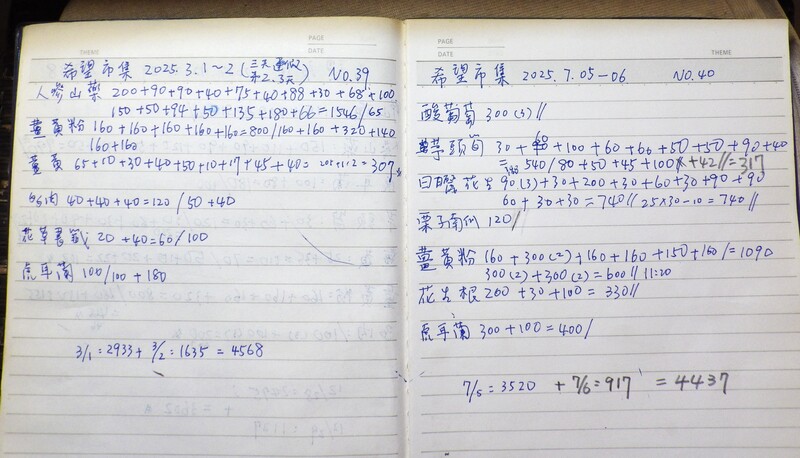 PAGE
DATE
THEME
希望市集 2025.3.1~2 (三天連假 第2.3天) NO.39
人參山藥 200+90+90+40+75+40+88+30+68+100
150+50+94+50+135+180+66=1546/65
薑黃粉 160+160+160+160+160=800/160+160+320+140
160+160
薑黃 65+50+30+40+50+10+17+45+40= =307
40+40+40=120/50+40
花草書籤 20+40=60/100
虎耳蘭 100/100+180
3/1:2933+3/2:1635=4568
PAGE
DATE
THEME
希望市集 2025.7.05-06 NO.40
酸葡萄 300(3)//
芋頭 30+60+100+60+60+50+50+90+40
=540/80+50+45+100 +42//=317
花生 90(3)+30+200+30+60+30+90+90
60+30+30=740// 25x30-10=740//
栗子南瓜 120/
薑黃粉 160+300(2)+160+160+150+160/=1090
300(2)+300(2)=600// 11:20
花生根 200+30+100=330//
虎耳蘭 300+100=400/
7/5=3520 +7/6=917 =4437